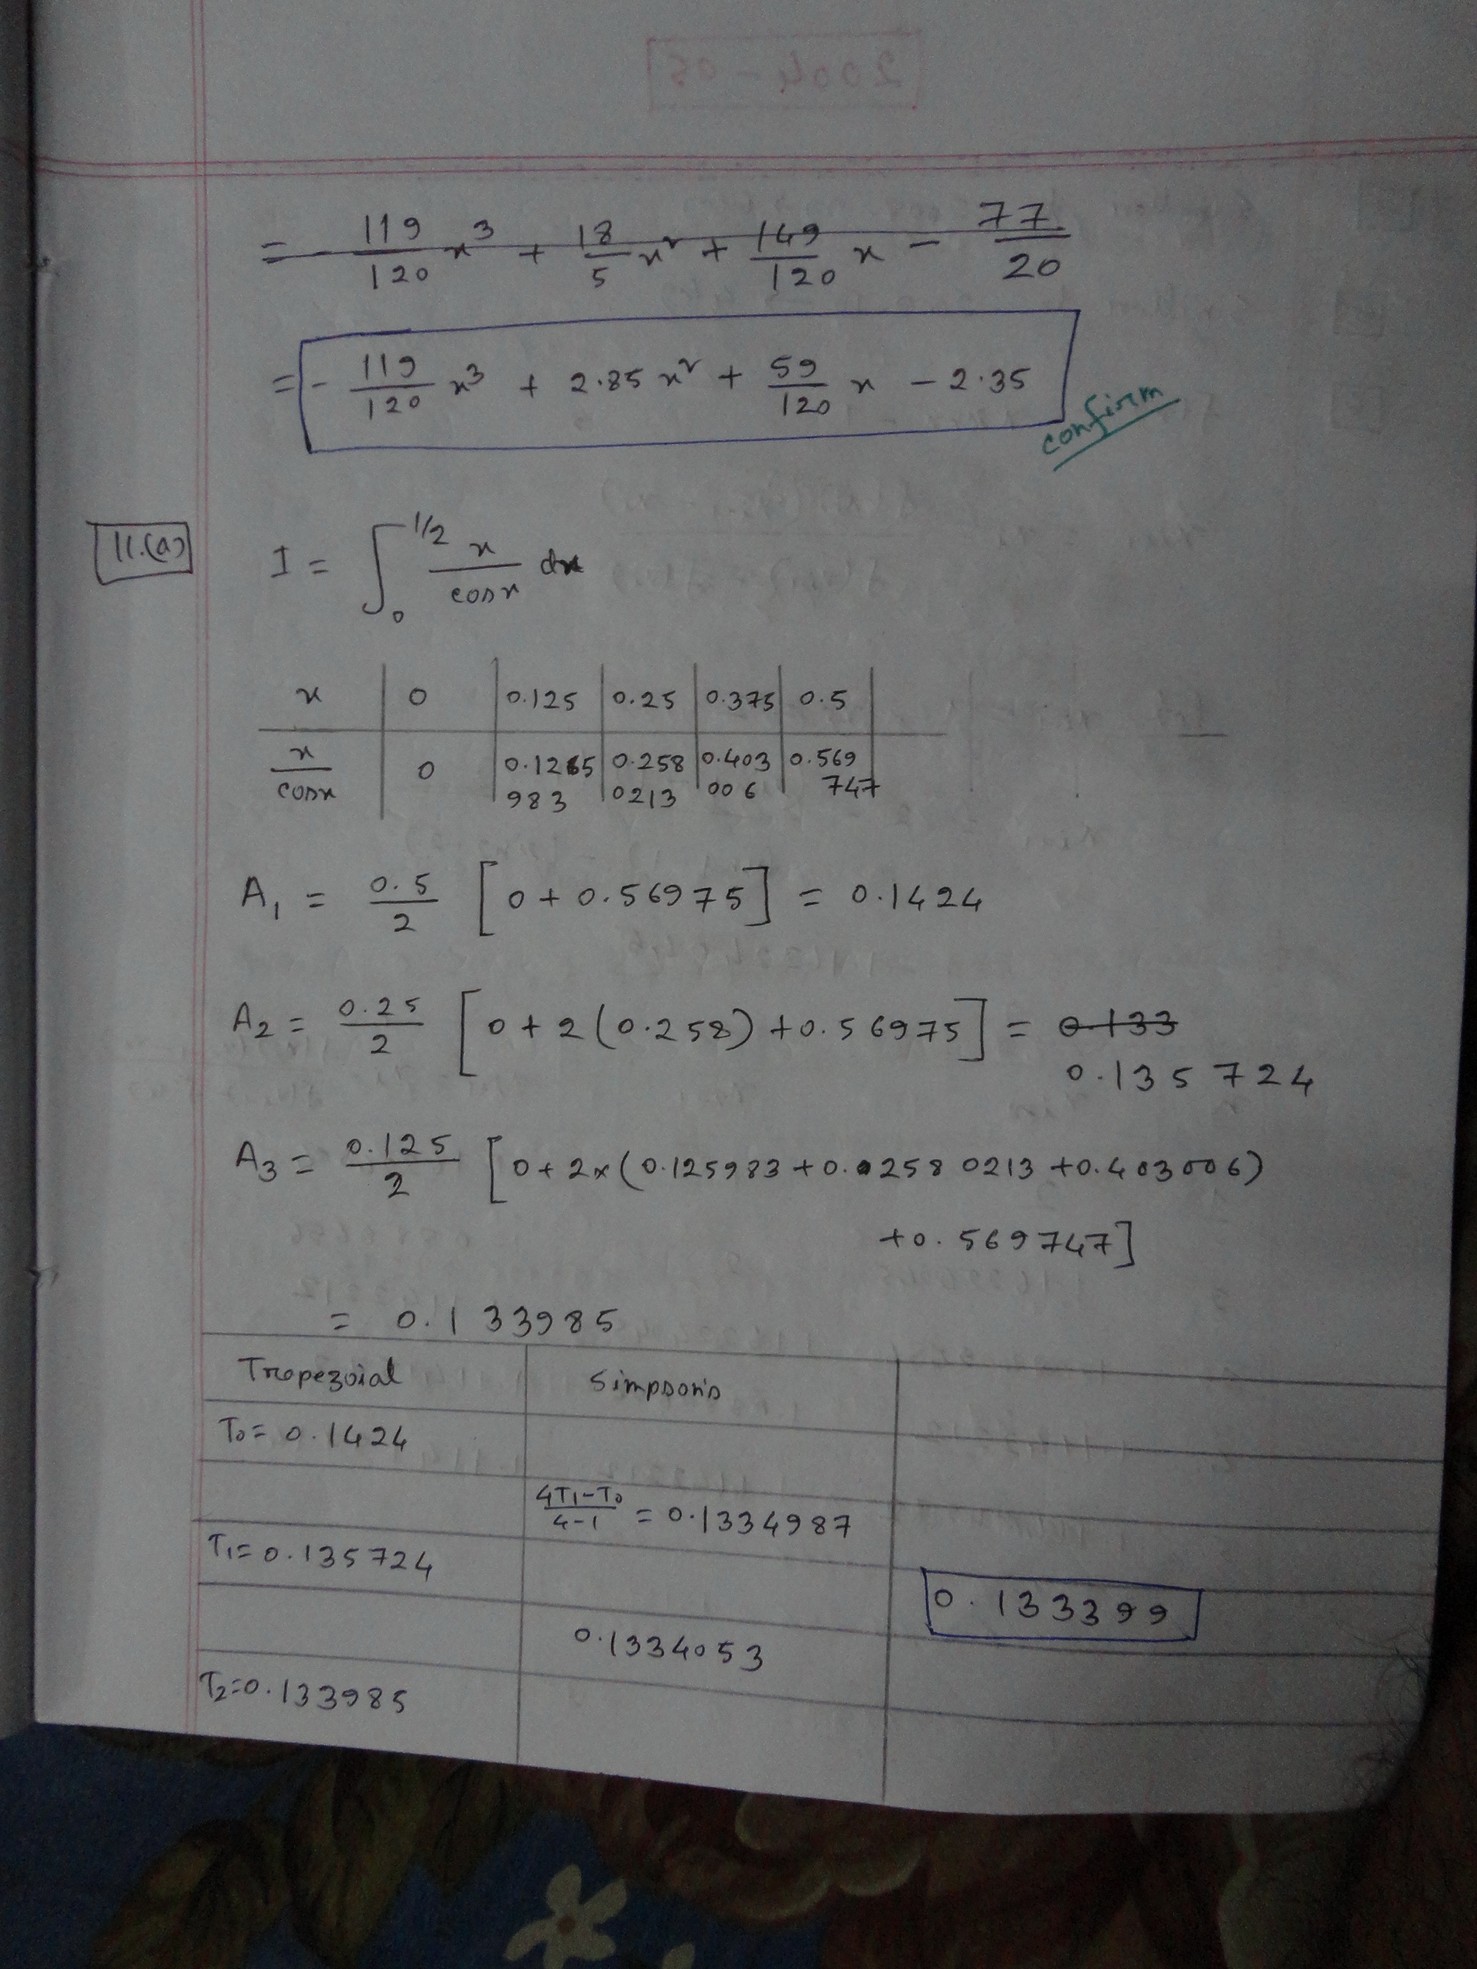 = - 119/120 x³ + 18/5 x² + 149/120 x - 77/20
= - 119/120 x³ + 2.85 x² + 59/120 x - 2.35
confirm
11.(a) I = ∫₀^1/2 x/cosx dx
x | 0 | 0.125 | 0.25 | 0.375 | 0.5
x/cosx | 0 | 0.1265983 | 0.2580213 | 0.403006 | 0.569747
A₁ = 0.5/2 [0 + 0.56975] = 0.1424
A₂ = 0.25/2 [0 + 2(0.258) + 0.56975] = 0.133
0.135724
A₃ = 0.125/2 [0 + 2×(0.125983 + 0.02580213 + 0.403006)
+ 0.569747]
= 0.133985
Trapezoial Simpson's
T₀ = 0.1424
4T₁-T₀/4-1 = 0.1334987
T₁ = 0.135724
0.133399
0.1334053
T₂ = 0.133985